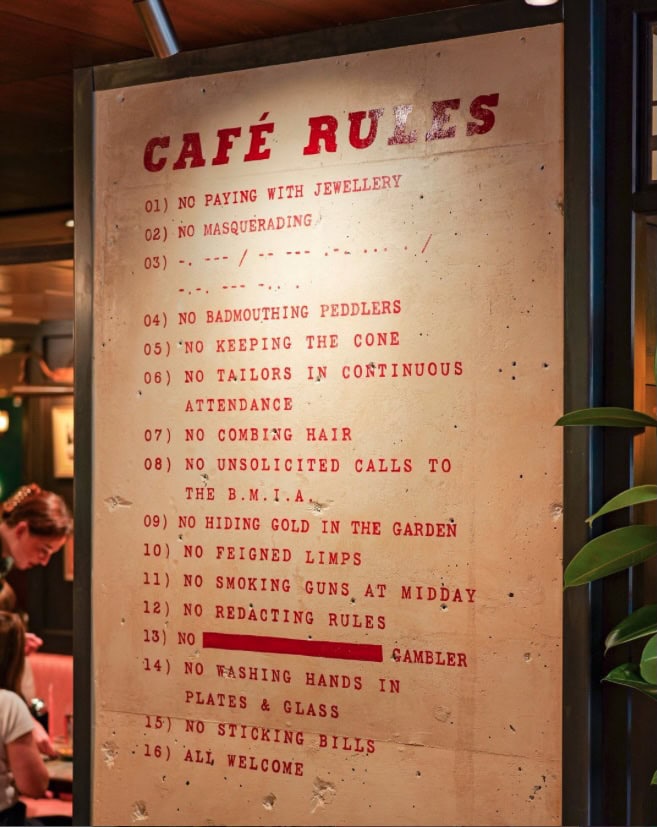 CAFÉ RULES
01) NO PAYING WITH JEWELLERY
02) NO MASQUERADING
03) -. --- / -- --- .-. ... . /
-.-. --- -.. .
04) NO BADMOUTHING PEDDLERS
05) NO KEEPING THE CONE
06) NO TAILORS IN CONTINUOUS
ATTENDANCE
07) NO COMBING HAIR
08) NO UNSOLICITED CALLS TO
THE B.M.I.A.
09) NO HIDING GOLD IN THE GARDEN
10) NO FEIGNED LIMPS
11) NO SMOKING GUNS AT MIDDAY
12) NO REDACTING RULES
13) NO GAMBLER
14) NO WASHING HANDS IN
PLATES & GLASS
15) NO STICKING BILLS
16) ALL WELCOME